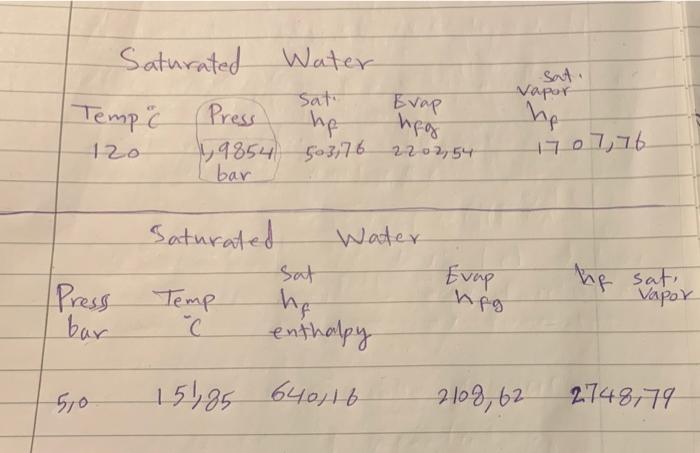 Saturated Water
Temp °C Press Sat. hf Evap hfg Sat. Vapor hf
120 1,9854 bar 503,76 2202,54 1707,76
Saturated Water
Press bar Temp °C Sat hf enthalpy Evap hfg hf sat. Vapor
5,0 151,85 640,16 2108,62 2748,79